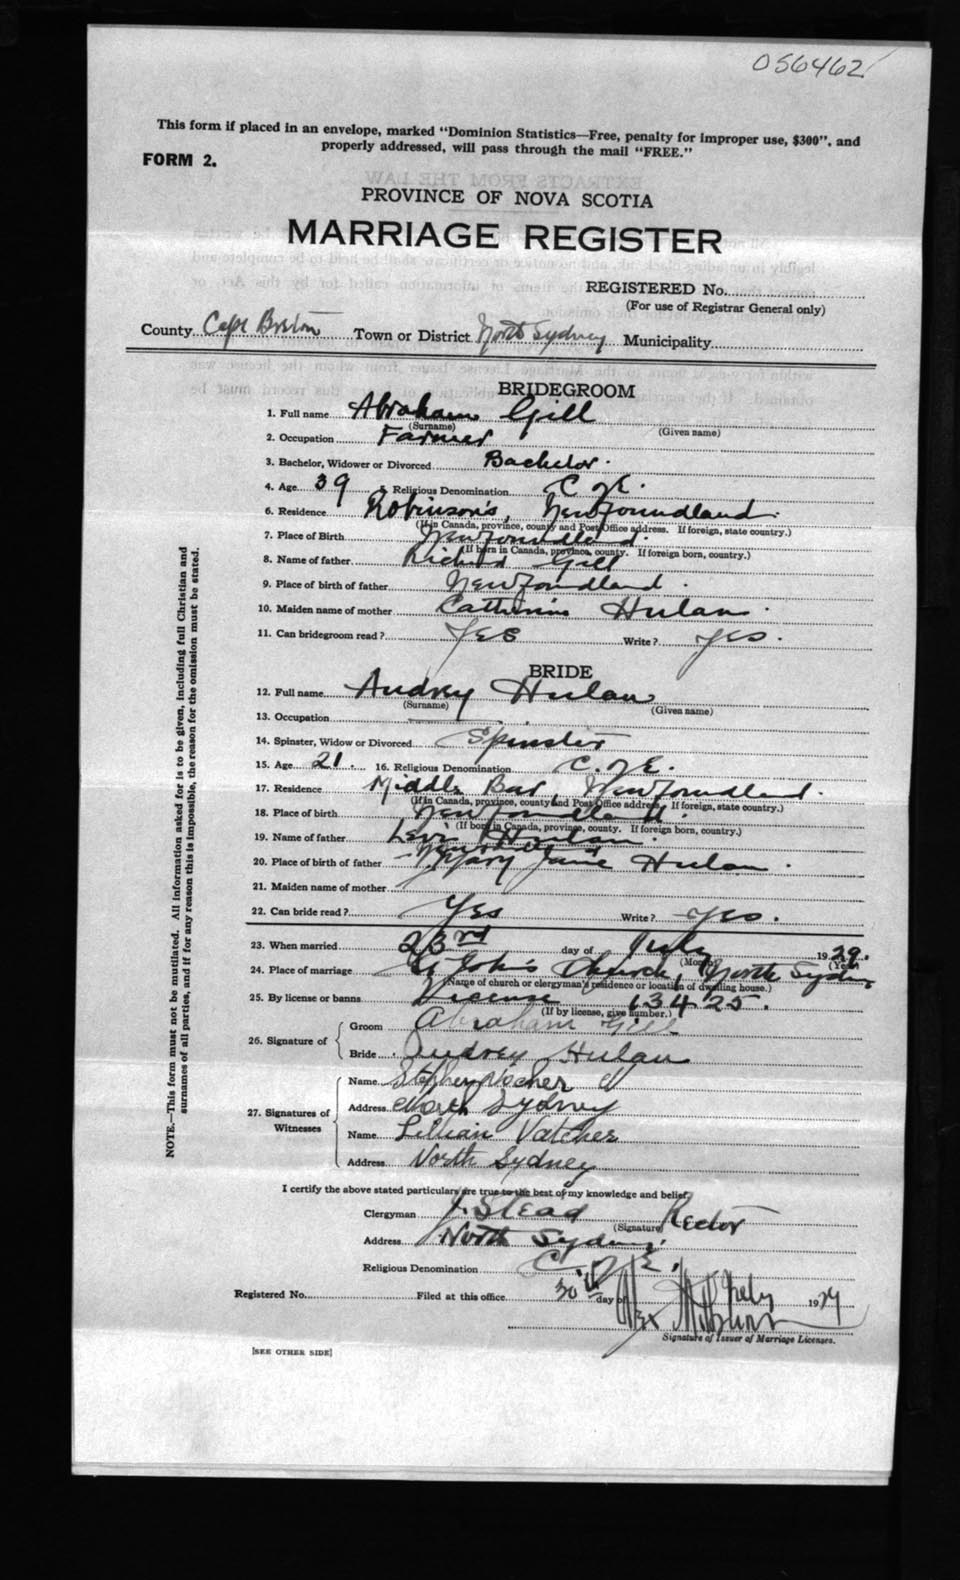 056462
This form if placed in an envelope, marked "Dominion Statistics—Free, penalty for improper use, $300", and
properly addressed, will pass through the mail "FREE."
FORM 2.
PROVINCE OF NOVA SCOTIA
MARRIAGE REGISTER
REGISTERED No.
(For use of Registrar General only)
County Cape Breton Town or District North Sydney Municipality
BRIDEGROOM
1. Full name Abraham Gill
(Surname) (Given name)
2. Occupation Farmer
3. Bachelor, Widower or Divorced Bachelor.
4. Age 39 5. Religious Denomination C of E.
6. Residence Robinson's, Newfoundland.
(If in Canada, province, county and Post Office address. If foreign, state country.)
7. Place of Birth Newfoundland.
(If born in Canada, province, county. If foreign born, country.)
8. Name of father Richard Gill
9. Place of birth of father Newfoundland.
10. Maiden name of mother Catherine Hulan.
11. Can bridegroom read? Yes Write? Yes.
BRIDE
12. Full name Audrey Hulan
(Surname) (Given name)
13. Occupation
14. Spinster, Widow or Divorced Spinster
15. Age 21. 16. Religious Denomination C. of E.
17. Residence Middle Bar, Newfoundland.
(If in Canada, province, county and Post Office address. If foreign, state country.)
18. Place of birth Newfoundland.
(If born in Canada, province, county. If foreign born, country.)
19. Name of father Levi Hulan.
20. Place of birth of father Newfoundland
Mary Jane Hulan.
21. Maiden name of mother
22. Can bride read? Yes Write? Yes.
23. When married 23rd day of July 1929.
(Month) (Year)
24. Place of marriage St John's Church, North Sydney
(Name of church or clergyman's residence or location of dwelling house.)
25. By license or banns License 13425.
(If by license, give number.)
26. Signature of
Groom Abraham Gill
Bride Audrey Hulan
27. Signatures of Witnesses
Name Stephen Vatcher
Address North Sydney
Name Lillian Vatcher
Address North Sydney
I certify the above stated particulars are true to the best of my knowledge and belief,
Clergyman J. Stead Rector
(Signature)
Address North Sydney.
Religious Denomination C. of E.
Registered No. Filed at this office 30th day of July 1929
Signature of Issuer of Marriage Licenses.
[SEE OTHER SIDE]
NOTE.—This form must not be mutilated. All information asked for is to be given, including full Christian and
surnames of all parties, and if for any reason this is impossible, the reason for the omission must be stated.